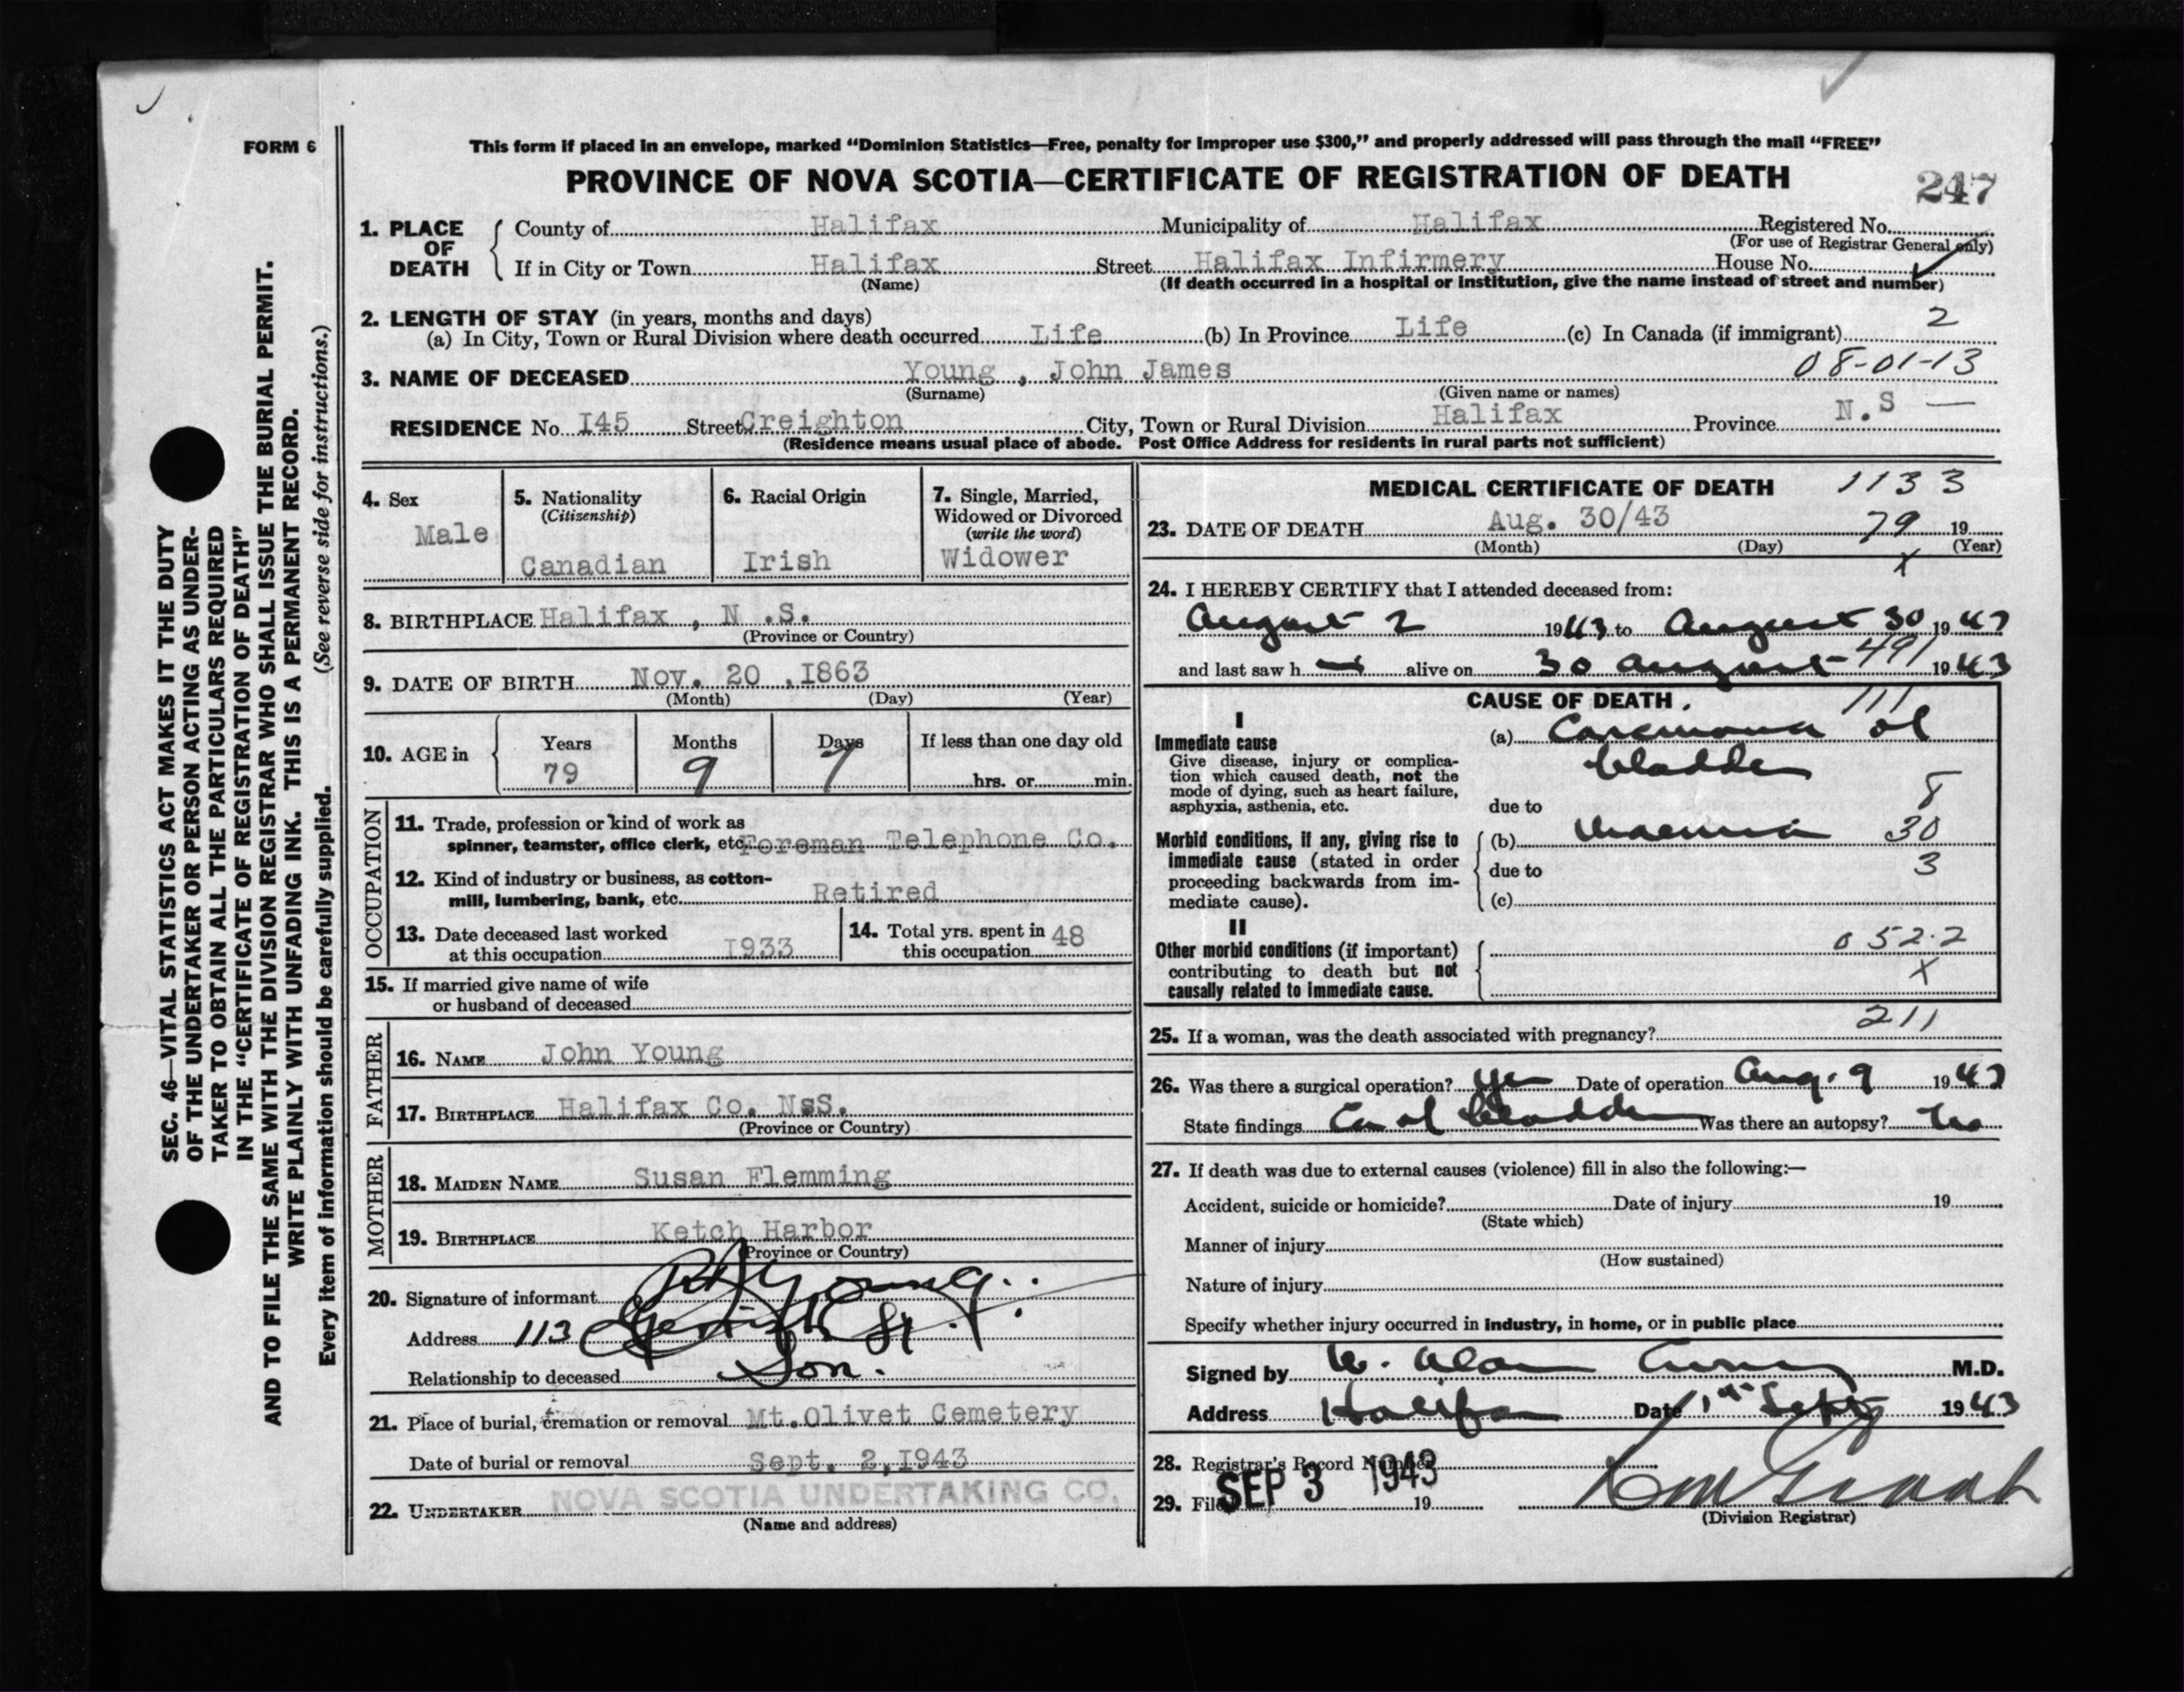 FORM 6
This form if placed in an envelope, marked "Dominion Statistics—Free, penalty for improper use $300," and properly addressed will pass through the mail "FREE"
PROVINCE OF NOVA SCOTIA—CERTIFICATE OF REGISTRATION OF DEATH
247
SEC. 46—VITAL STATISTICS ACT MAKES IT THE DUTY
OF THE UNDERTAKER OR PERSON ACTING AS UNDER-
TAKER TO OBTAIN ALL THE PARTICULARS REQUIRED
IN THE "CERTIFICATE OF REGISTRATION OF DEATH"
AND TO FILE THE SAME WITH THE DIVISION REGISTRAR WHO SHALL ISSUE THE BURIAL PERMIT.
WRITE PLAINLY WITH UNFADING INK. THIS IS A PERMANENT RECORD.
Every item of information should be carefully supplied. (See reverse side for instructions.)
1. PLACE OF DEATH County of Halifax Municipality of Halifax Registered No.
(For use of Registrar General only)
If in City or Town Halifax Street Halifax Infirmery House No.
(Name) (If death occurred in a hospital or institution, give the name instead of street and number)
2. LENGTH OF STAY (in years, months and days)
(a) In City, Town or Rural Division where death occurred Life (b) In Province Life (c) In Canada (if immigrant) 2
3. NAME OF DECEASED Young , John James 08-01-13
(Surname) (Given name or names)
RESIDENCE No. I45 Street Creighton City, Town or Rural Division Halifax Province N.S —
(Residence means usual place of abode. Post Office Address for residents in rural parts not sufficient)
4. Sex
Male
5. Nationality
(Citizenship)
Canadian
6. Racial Origin
Irish
7. Single, Married,
Widowed or Divorced
(write the word)
Widower
8. BIRTHPLACE Halifax , N .S.
(Province or Country)
9. DATE OF BIRTH Nov. 20 ,I863
(Month) (Day) (Year)
10. AGE in Years Months Days If less than one day old
79 9 hrs. or min.
OCCUPATION
11. Trade, profession or kind of work as
spinner, teamster, office clerk, etc. Foreman Telephone Co.
12. Kind of industry or business, as cotton-
mill, lumbering, bank, etc. Retired
13. Date deceased last worked
at this occupation I933
14. Total yrs. spent in
this occupation 48
15. If married give name of wife
or husband of deceased
FATHER
16. NAME John Young
17. BIRTHPLACE Halifax Co. NsS.
(Province or Country)
MOTHER
18. MAIDEN NAME Susan Flemming
19. BIRTHPLACE Ketch Harbor
(Province or Country)
20. Signature of informant Young
Address 113 St.
Relationship to deceased Son.
21. Place of burial, cremation or removal Mt.Olivet Cemetery
Date of burial or removal Sept. 2,I943
22. UNDERTAKER NOVA SCOTIA UNDERTAKING CO.
(Name and address)
MEDICAL CERTIFICATE OF DEATH 1133
23. DATE OF DEATH Aug. 30/43 79 19
(Month) (Day) (Year)
X
24. I HEREBY CERTIFY that I attended deceased from:
August 2 1943 to August 30 1943
and last saw h alive on 30 August 491 1943
CAUSE OF DEATH. 111
I
Immediate cause
Give disease, injury or complica-
tion which caused death, not the
mode of dying, such as heart failure,
asphyxia, asthenia, etc.
(a) Carcinoma of
bladder
due to 8
Morbid conditions, if any, giving rise to
immediate cause (stated in order
proceeding backwards from im-
mediate cause).
(b) Uraemia 30
due to 3
(c)
II
Other morbid conditions (if important)
contributing to death but not
causally related to immediate cause.
052.2
X
211
25. If a woman, was the death associated with pregnancy?
26. Was there a surgical operation? Yes Date of operation Aug. 9 1943
State findings Ca of bladder Was there an autopsy? No
27. If death was due to external causes (violence) fill in also the following:—
Accident, suicide or homicide? Date of injury 19
(State which)
Manner of injury
(How sustained)
Nature of injury
Specify whether injury occurred in industry, in home, or in public place
Signed by W. Alan Curry M.D.
Address Halifax Date 1st Sept 1943
28. Registrar's Record Number
29. Filed SEP 3 1943 19
(Division Registrar)